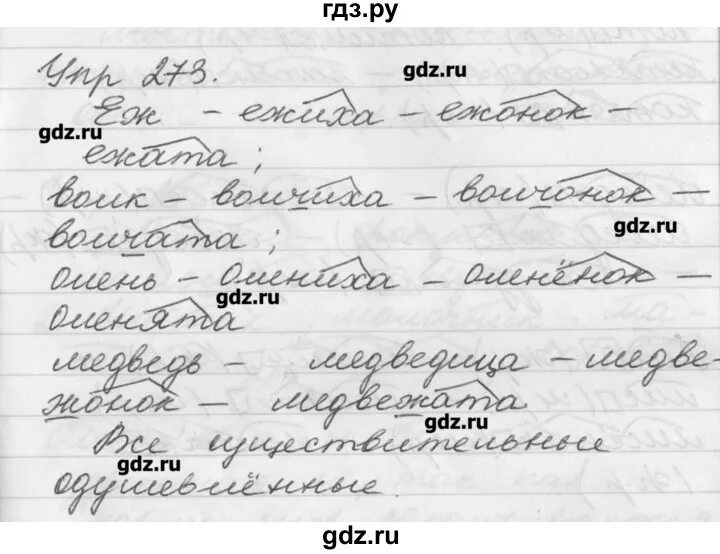 гдз.ру
Упр 273.
gdz.ru
Еж - ежиха - ежонок -
gdz.ru
ежата;
волк - волчиха - волчонок -
gdz.ru
волчата;
олень - олениха - оленёнок -
gdz.ru
оленята
медведь - медведица - медве-
жонок - медвежата
gdz.ru
Все существительные
gdz.ru
одушевлённые.
gdz.ru